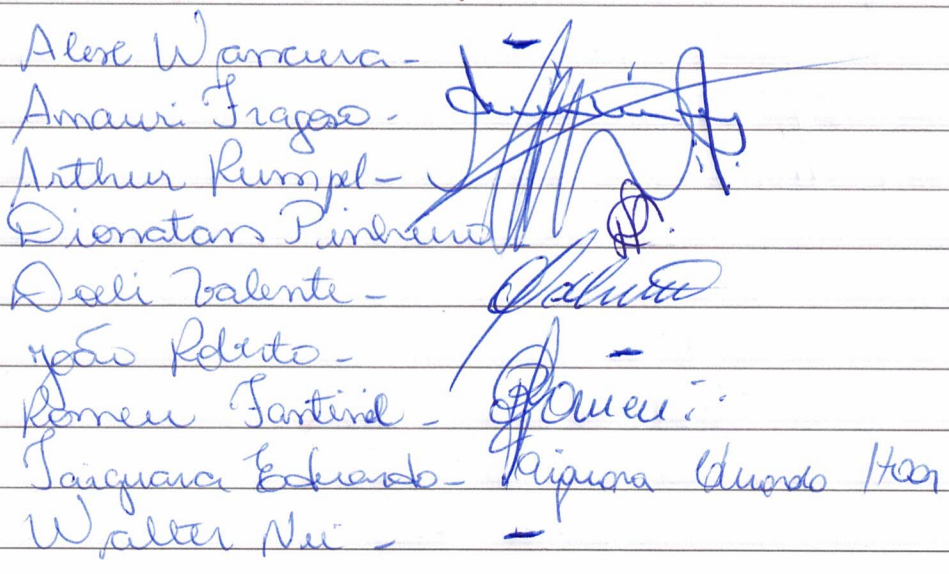 Alex Wasscura -
Amauri Fragoso -
Arthur Rumpel -
Dionatans Pinheiro
Doeli Valente -
João Roberto - -
Romeu Fantinel - Romeu
Taiguara Eduardo - Taiguara Eduardo
Walter Nei - -